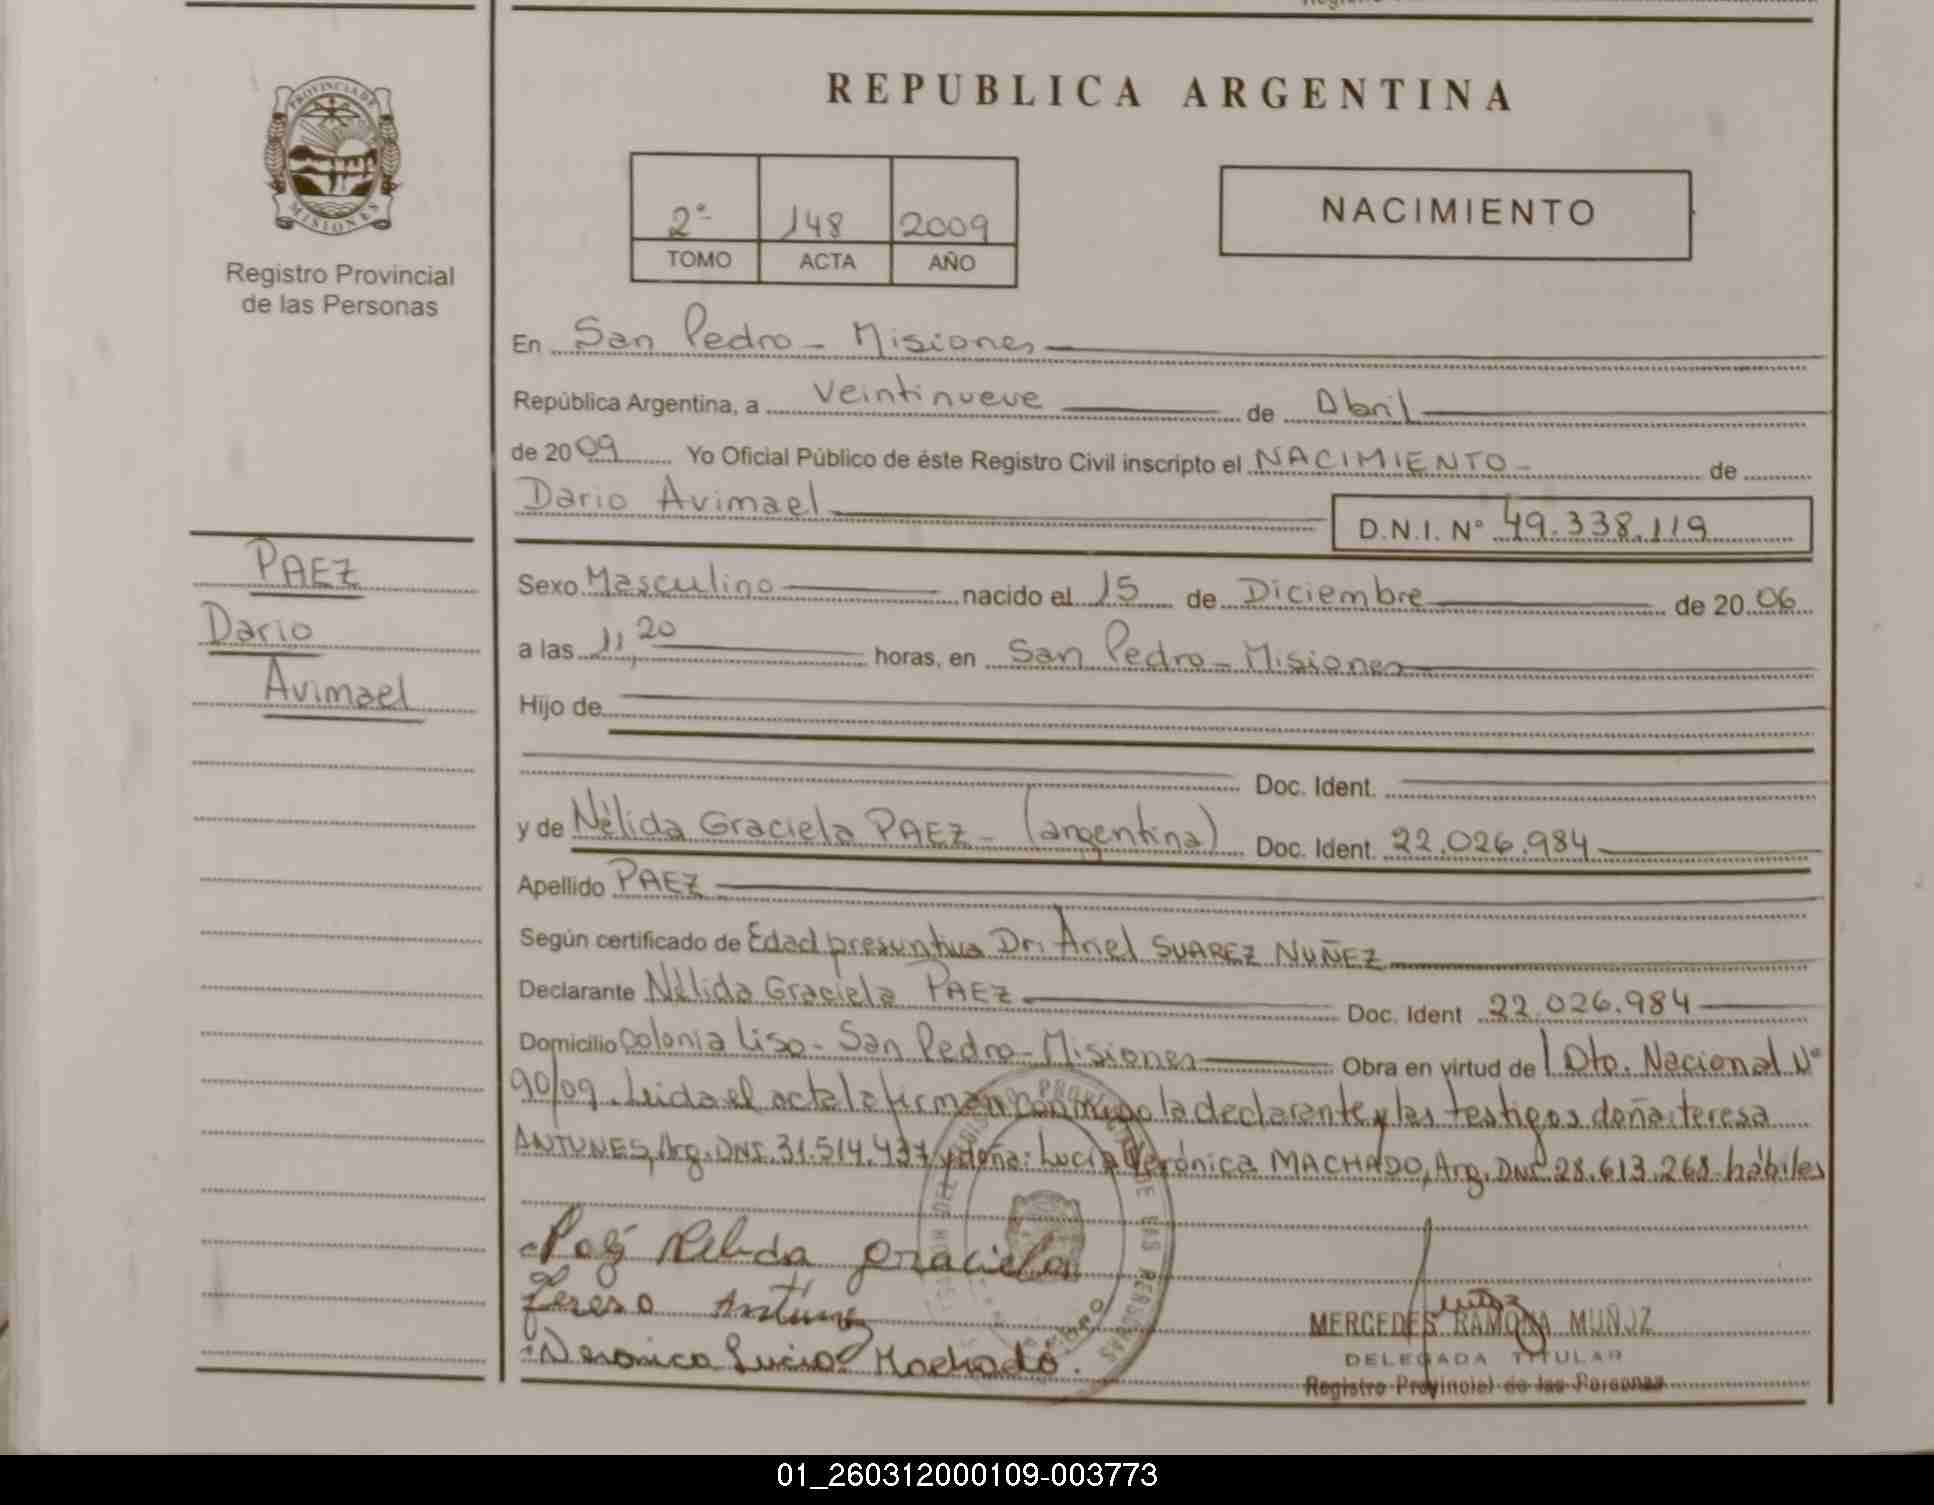 REPUBLICA ARGENTINA
PROVINCIA DE
MISIONES
Registro Provincial
de las Personas
2º 148 2009
TOMO ACTA AÑO
NACIMIENTO
En San Pedro - Misiones
República Argentina, a Veintinueve de Abril
de 2009 Yo Oficial Público de éste Registro Civil inscripto el NACIMIENTO - de
Dario Avimael D.N.I. Nº 49.338.119
PAEZ
Dario
Avimael
Sexo Masculino nacido el 15 de Diciembre de 20 06
a las 11,20 horas, en San Pedro - Misiones
Hijo de
Doc. Ident.
y de Nélida Graciela PAEZ - (argentina) Doc. Ident. 22.026.984
Apellido PAEZ
Según certificado de Edad presuntiva Dr. Ariel SUAREZ NUÑEZ
Declarante Nélida Graciela PAEZ Doc. Ident 22.026.984
Domicilio Colonia Liso - San Pedro - Misiones Obra en virtud del Dto. Nacional Nº
90/09. Leida el acta la firman conmigo la declarante y las testigos doña: teresa
ANTUNES, Arg. DNI. 31.514.437 y doña: Lucía Verónica MACHADO, Arg. DNI 28.613.268 hábiles
Nelida Graciela
Tereso Antunez
Veronica Lucia Machado.
MERCEDES RAMONA MUÑOZ
DELEGADA TITULAR
Registro Provincial de las Personas
01_260312000109-003773